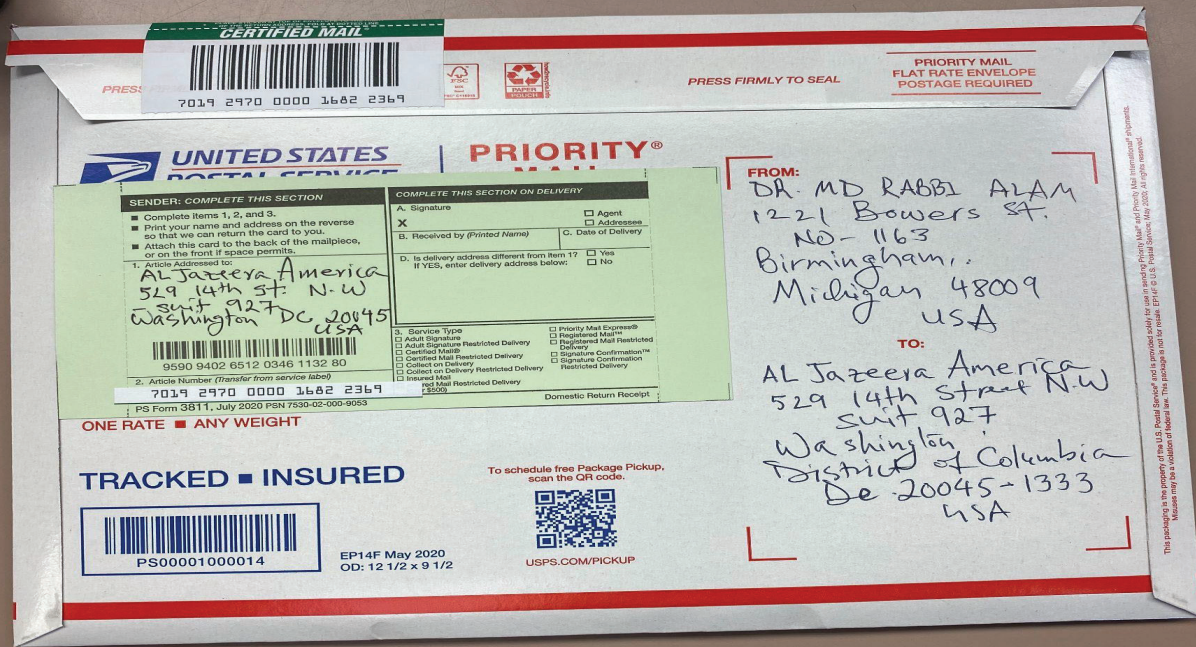 CERTIFIED MAIL
7019 2970 0000 1682 2369
PRESS
FSC
PAPER
POUCH
PRESS FIRMLY TO SEAL
PRIORITY MAIL
FLAT RATE ENVELOPE
POSTAGE REQUIRED
UNITED STATES
POSTAL SERVICE
PRIORITY®
MAIL
SENDER: COMPLETE THIS SECTION
■ Complete items 1, 2, and 3.
■ Print your name and address on the reverse
so that we can return the card to you.
■ Attach this card to the back of the mailpiece,
or on the front if space permits.
1. Article Addressed to:
AL Jazeera America
529 14th St. N.W
suit 927
Washington DC 20045
USA
9590 9402 6512 0346 1132 80
2. Article Number (Transfer from service label)
7019 2970 0000 1682 2369
PS Form 3811, July 2020 PSN 7530-02-000-9053
COMPLETE THIS SECTION ON DELIVERY
A. Signature
X
☐ Agent
☐ Addressee
B. Received by (Printed Name)
C. Date of Delivery
D. Is delivery address different from item 1? ☐ Yes
If YES, enter delivery address below: ☐ No
3. Service Type
☐ Adult Signature
☐ Adult Signature Restricted Delivery
☐ Certified Mail®
☐ Certified Mail Restricted Delivery
☐ Collect on Delivery
☐ Collect on Delivery Restricted Delivery
☐ Insured Mail
red Mail Restricted Delivery
r $500)
☐ Priority Mail Express®
☐ Registered Mail™
☐ Registered Mail Restricted
Delivery
☐ Signature Confirmation™
☐ Signature Confirmation
Restricted Delivery
Domestic Return Receipt
ONE RATE ■ ANY WEIGHT
TRACKED ■ INSURED
PS00001000014
EP14F May 2020
OD: 12 1/2 x 9 1/2
To schedule free Package Pickup,
scan the QR code.
USPS.COM/PICKUP
FROM:
DR. MD RABBI ALAM
1221 Bowers St.
NO - 1163
Birmingham,
Michigan 48009
USA
TO:
AL Jazeera America
529 14th Street N.W
suit 927
Washington
District of Columbia
Dc 20045-1333
USA
This packaging is the property of the U.S. Postal Service® and is provided solely for use in sending Priority Mail® and Priority Mail International® shipments.
Misuses may be a violation of federal law. This package is not for resale. EP14F © U.S. Postal Service; May 2020; All rights reserved.